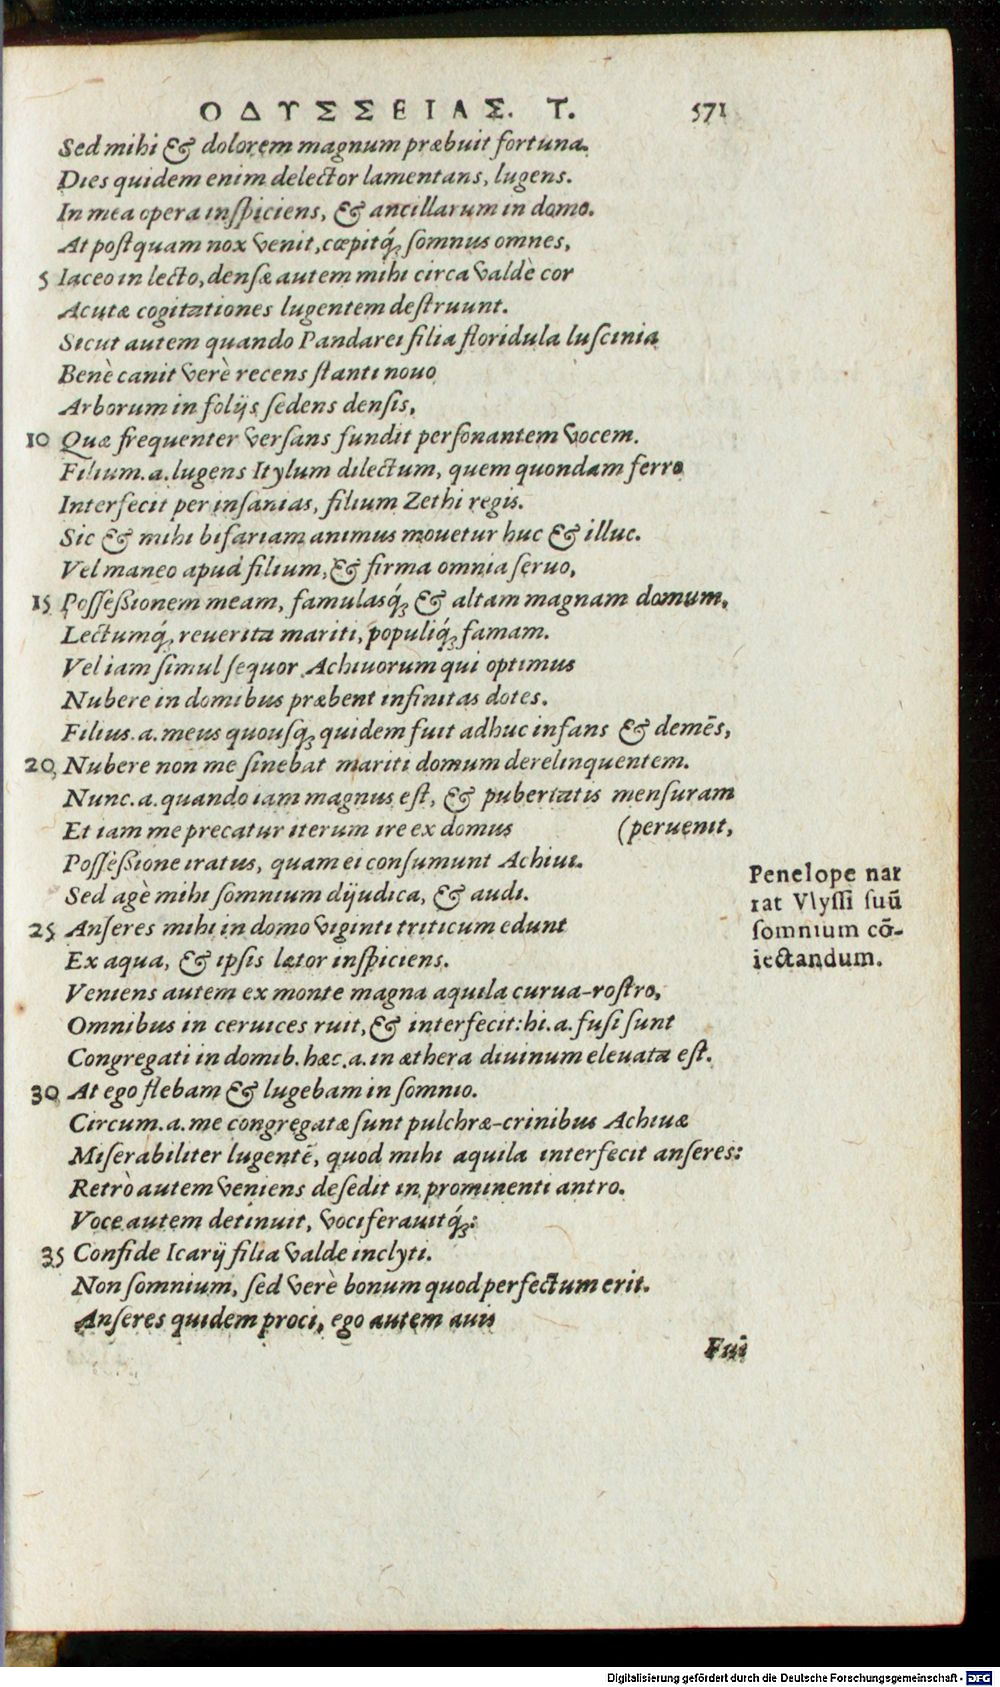 ΟΔΥΣΣΕΙΑΣ. Τ. 571
Sed mihi & dolorem magnum præbuit fortuna.
Dies quidem enim delector lamentans, lugens.
In mea opera inſpiciens, & ancillarum in domo.
At poſtquam nox venit, cœpitq́; ſomnus omnes,
5 Iaceo in lecto, denſæ autem mihi circa valdè cor
Acutæ cogitationes lugentem deſtruunt.
Sicut autem quando Pandarei filia floridula luſcinia
Benè canit verè recens ſtanti nouo
Arborum in folijs ſedens denſis,
10 Quæ frequenter verſans fundit perſonantem vocem.
Filium .a. lugens Itylum dilectum, quem quondam ferro
Interfecit per inſanias, filium Zethi regis.
Sic & mihi bifariam animus mouetur huc & illuc.
Vel maneo apud filium, & firma omnia ſeruo,
15 Poſſeßionem meam, famulasq́; & altam magnam domum,
Lectumq́; reuerita mariti, populiq́; famam.
Vel iam ſimul ſequor Achiuorum qui optimus
Nubere in domibus præbent infinitas dotes.
Filius .a. meus quouſq; quidem fuit adhuc infans & demẽs,
20 Nubere non me ſinebat mariti domum derelinquentem.
Nunc .a. quando iam magnus eſt, & pubertatis menſuram
Et iam me precatur iterum ire ex domus (peruenit,
Poſſeßione iratus, quam ei conſumunt Achiui.
Sed agè mihi ſomnium dijudica, & audi.
25 Anſeres mihi in domo viginti triticum edunt
Ex aqua, & ipſis lætor inſpiciens.
Veniens autem ex monte magna aquila curua-roſtro,
Omnibus in ceruices ruit, & interfecit: hi .a. fuſi ſunt
Congregati in domib. hæc .a. in æthera diuinum eleuata eſt.
30 At ego flebam & lugebam in ſomnio.
Circum .a. me congregatæ ſunt pulchræ-crinibus Achiuæ
Miſerabiliter lugentẽ, quod mihi aquila interfecit anſeres:
Retrò autem veniens deſedit in prominenti antro.
Voce autem detinuit, vociferauitq́;:
35 Confide Icarij filia valde inclyti.
Non ſomnium, ſed verè bonum quod perfectum erit.
Anſeres quidem proci, ego autem auis
Fui
Penelope nar
rat Vlyſſi ſuũ
ſomnium cõ-
iectandum.
Digitalisierung gefördert durch die Deutsche Forschungsgemeinschaft - DFG